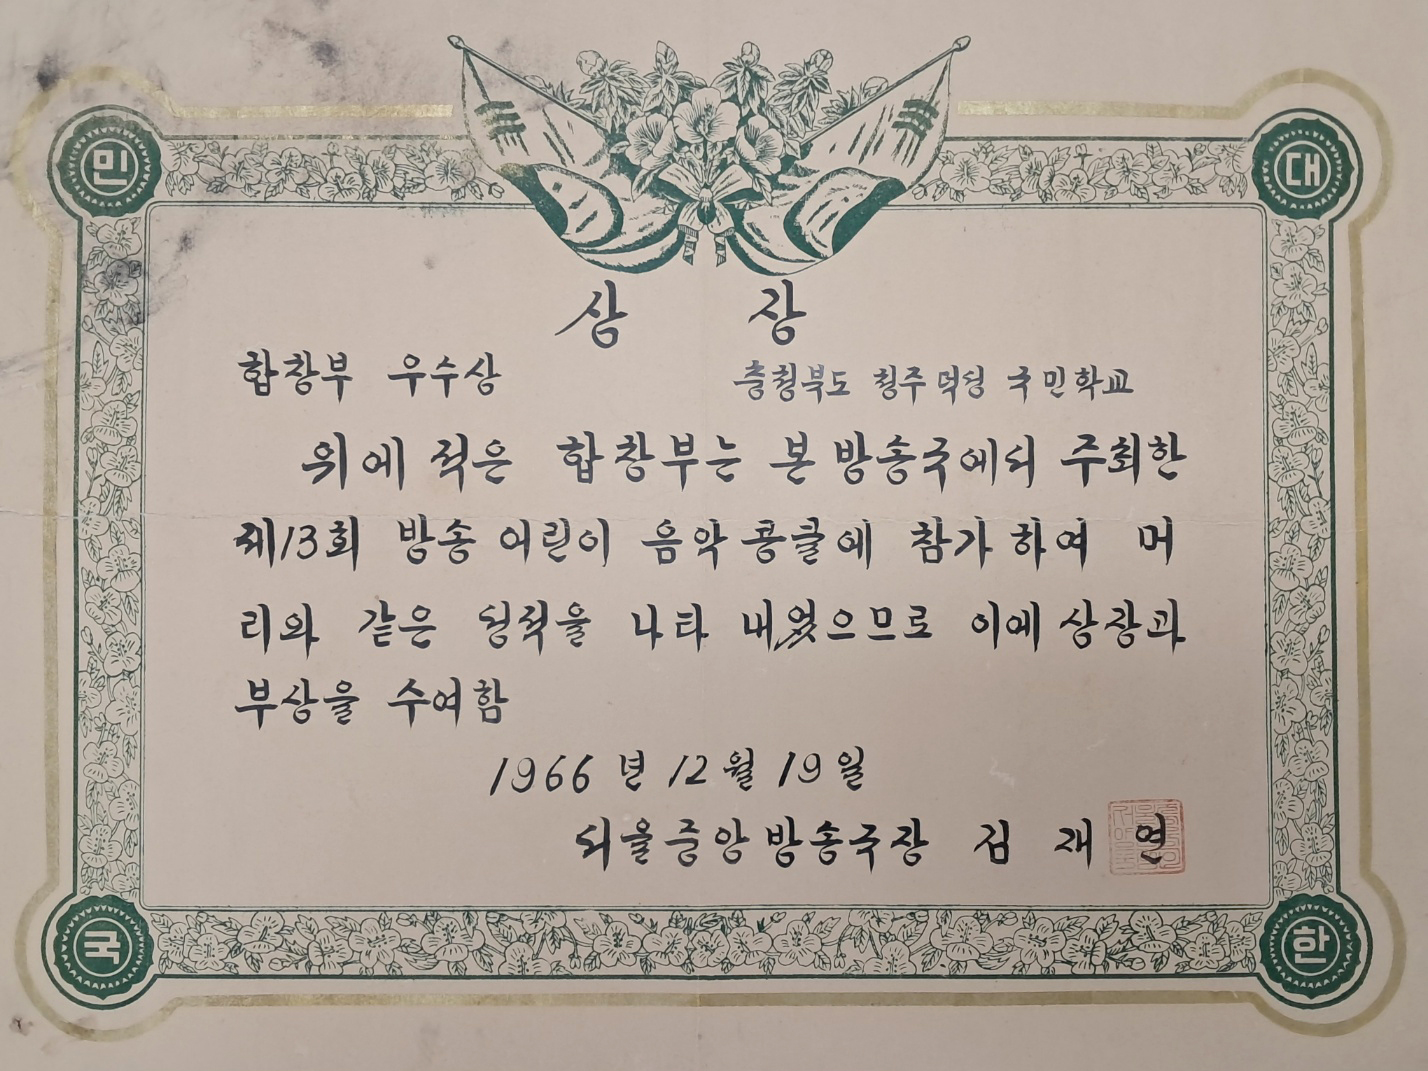 대 한 민 국
상 장
합창부 우수상 충청북도 청주 덕성 국민학교
위에 적은 합창부는 본 방송국에서 주최한
제13회 방송 어린이 음악 콩쿨에 참가 하여 머
리와 같은 성적을 나타 내었으므로 이에 상장과
부상을 수여함
1966 년 12 월 19 일
서울중앙방송국장 김 재 연